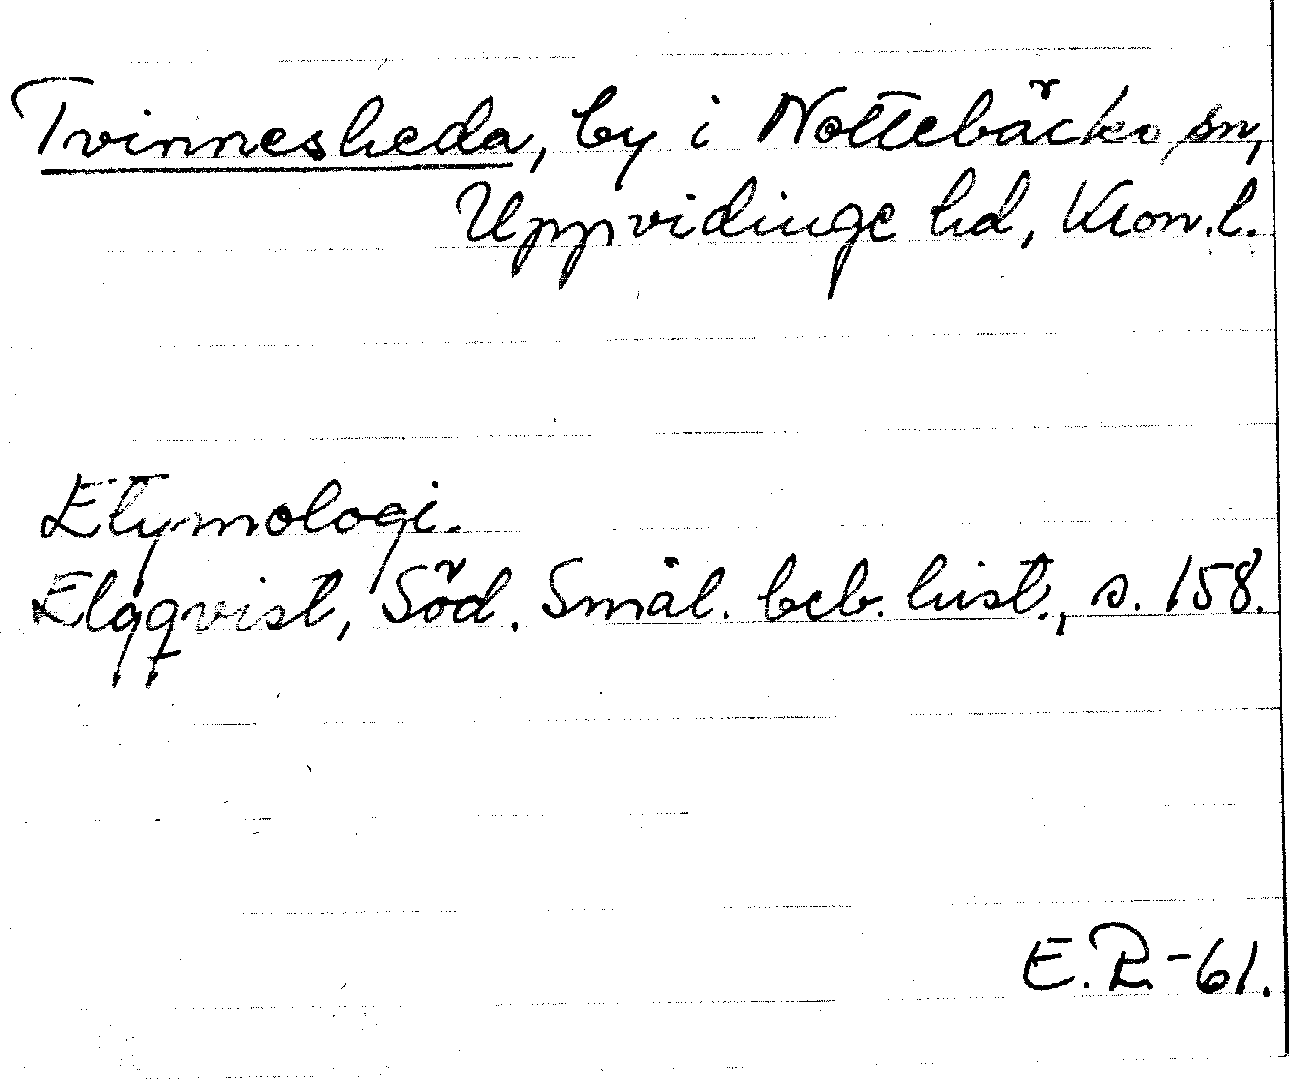 Tvinnesheda, by i Nottebäcks sn,
Uppvidinge hd, Kron.l.
Etymologi.
Elgqvist, Söd. Smål. beb. hist., s. 158.
E.R-61.